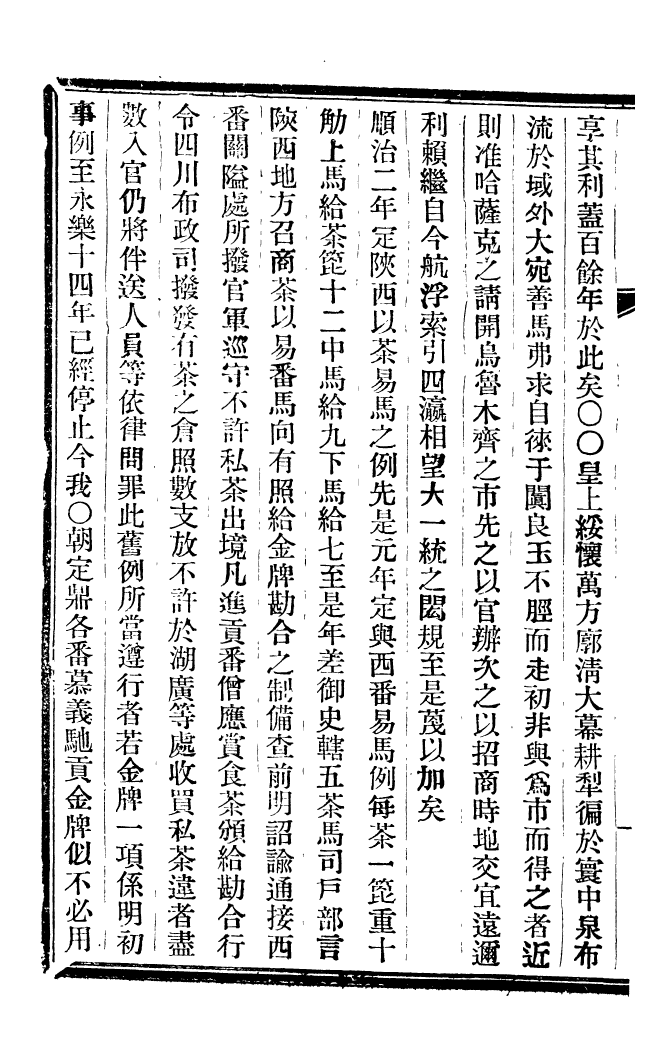 享其利蓋百餘年於此矣○○皇上綏懷萬方廓清大幕耕犁徧於寰中泉布
流於域外大宛善馬弗求自徠于闐良玉不脛而走初非與爲市而得之者近
則准哈薩克之請開烏魯木齊之市先之以官辦次之以招商時地交宜遠邇
利賴繼自今航浮索引四瀛相望大一統之閎規至是蔑以加矣
順治二年定陝西以茶易馬之例先是元年定與西番易馬例每茶一箆重十
觔上馬給茶箆十二中馬給九下馬給七至是年差御史轄五茶馬司戶部言
陝西地方召商茶以易番馬向有照給金牌勘合之制備查前明詔諭通接西
番關隘處所撥官軍巡守不許私茶出境凡進貢番僧應賞食茶頒給勘合行
令四川布政司撥發有茶之倉照數支放不許於湖廣等處收買私茶違者盡
數入官仍將伴送人員等依律問罪此舊例所當遵行者若金牌一項係明初
事例至永樂十四年已經停止今我○朝定鼎各番慕義馳貢金牌似不必用